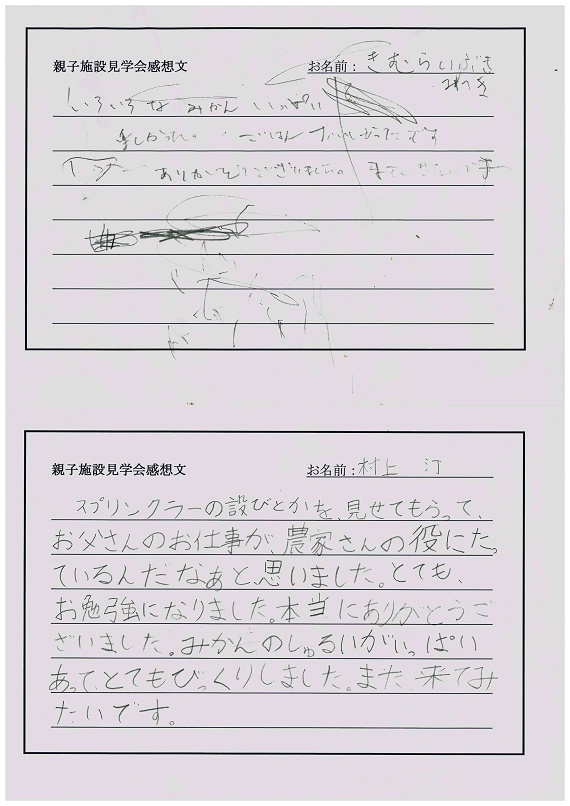 親子施設見学会感想文
お名前：きむらいぶき
いろいろな みかん いっぱい
楽しかった。 ごはん おいしかったです
ありがとうございました。
親子施設見学会感想文
お名前：村上 汀
スプリンクラーの設びとかを、見せてもらって、
お父さんのお仕事が、農家さんの役にたっ
ているんだなぁと、思いました。とても、
お勉強になりました。本当にありがとうご
ざいました。みかんのしゅるいがいっぱい
あって、とてもびっくりしました。また、来てみ
たいです。